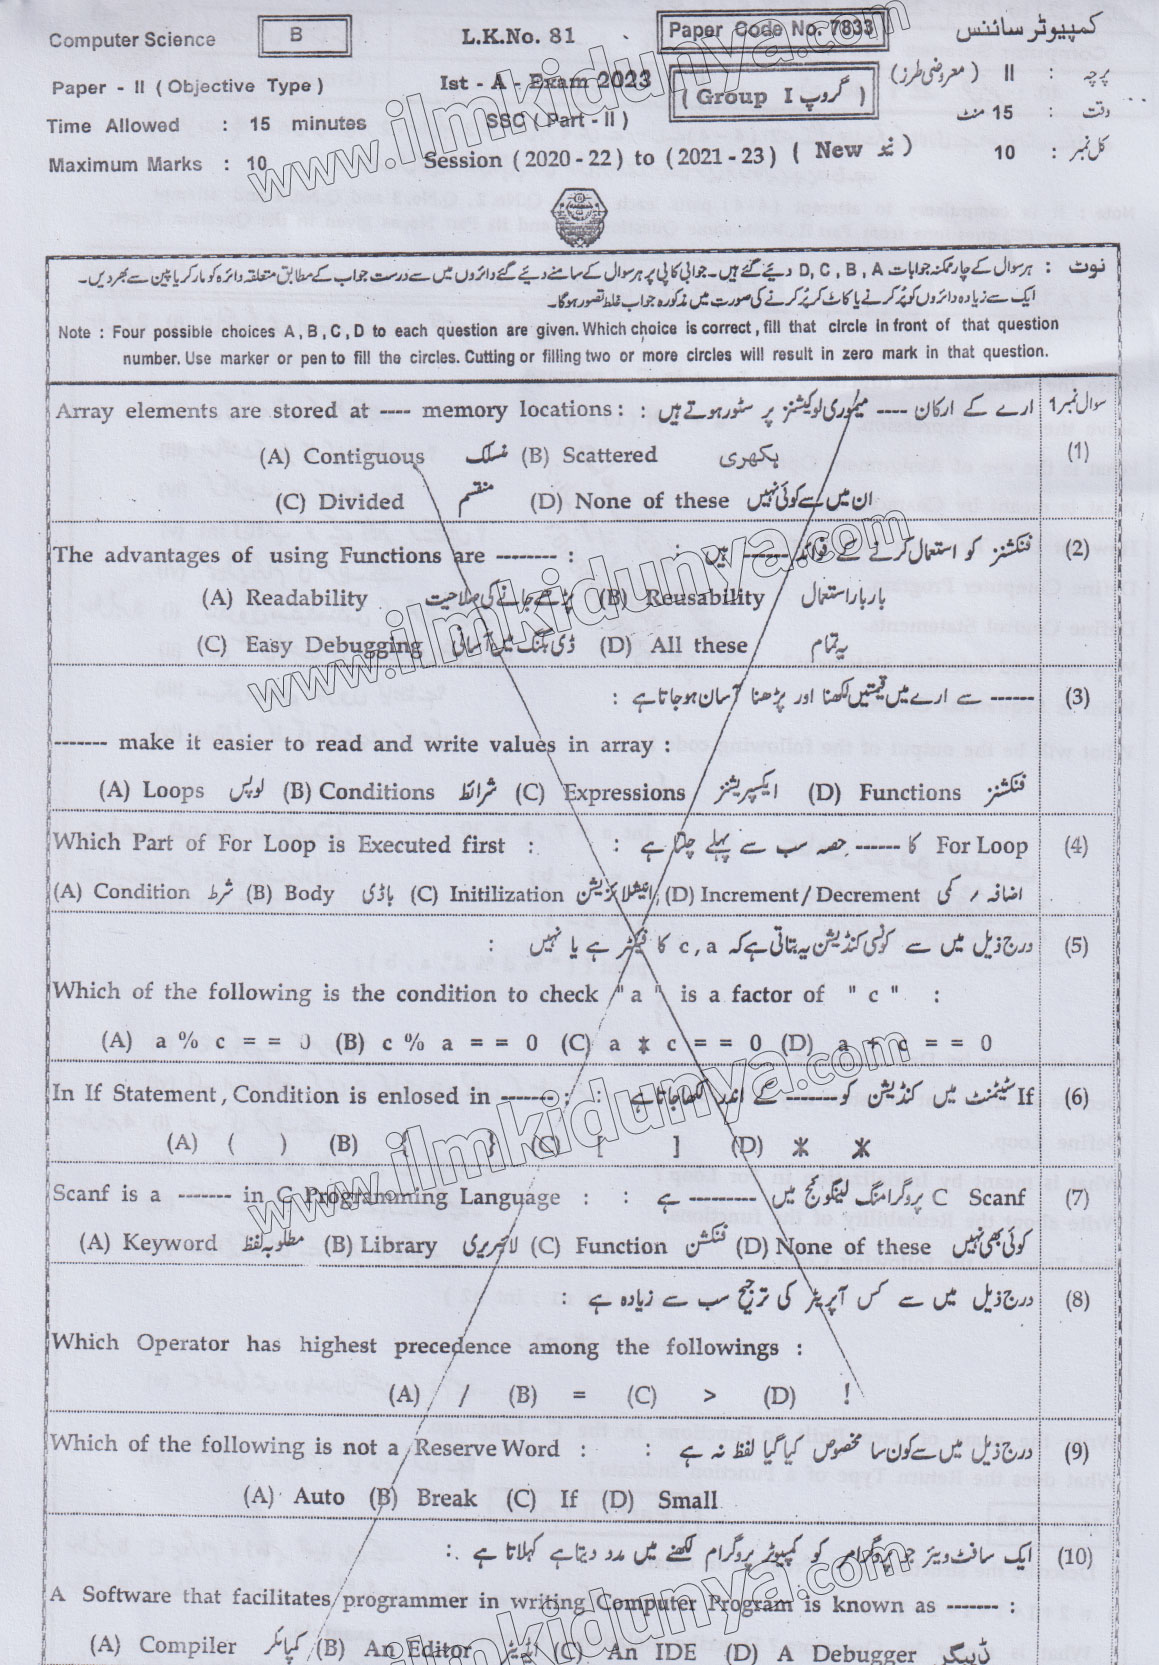 Computer Science
B
L.K.No. 81
Paper Code No. 7833
کمپیوٹر سائنس
Paper - II ( Objective Type )
Ist - A - Exam 2023
( Group I گروپ )
پرچہ : II ( معروضی طرز )
Time Allowed : 15 minutes
SSC ( Part - II )
وقت : 15 منٹ
Maximum Marks : 10
Session ( 2020 - 22 ) to ( 2021 - 23 ) ( New نیو )
کل نمبر : 10
نوٹ : ہر سوال کے چار ممکنہ جوابات D, C, B, A دیئے گئے ہیں۔ جوابی کاپی پر ہر سوال کے سامنے دیئے گئے دائروں میں سے درست جواب کے مطابق متعلقہ دائرہ کو مارکر یا پین سے بھر دیں۔
ایک سے زیادہ دائروں کو پُر کرنے یا کاٹ کر پُر کرنے کی صورت میں مذکورہ جواب غلط تصور ہوگا۔
Note : Four possible choices A , B , C , D to each question are given. Which choice is correct , fill that circle in front of that question
number. Use marker or pen to fill the circles. Cutting or filling two or more circles will result in zero mark in that question.
سوال نمبر 1
Array elements are stored at ---- memory locations : : ارے کے ارکان ---- میموری لوکیشنز پر سٹور ہوتے ہیں
(1)
(A) Contiguous منسلک (B) Scattered بکھری
(C) Divided منقسم (D) None of these ان میں سے کوئی نہیں
The advantages of using Functions are -------- : : فنکشنز کو استعمال کرنے کے فوائد ------ ہیں (2)
(A) Readability پڑھے جانے کی صلاحیت (B) Reusability بار بار استعمال
(C) Easy Debugging ڈی بگنگ میں آسانی (D) All these یہ تمام
------ سے ارے میں قیمتیں لکھنا اور پڑھنا آسان ہو جاتا ہے : (3)
------- make it easier to read and write values in array :
(A) Loops لوپس (B) Conditions شرائط (C) Expressions ایکسپریشنز (D) Functions فنکشنز
Which Part of For Loop is Executed first : : For Loop کا ------ حصہ سب سے پہلے چلتا ہے (4)
(A) Condition شرط (B) Body باڈی (C) Initilization انیشلائزیشن (D) Increment / Decrement اضافہ / کمی
درج ذیل میں سے کونسی کنڈیشن یہ بتاتی ہے کہ c , a کا فیکٹر ہے یا نہیں : (5)
Which of the following is the condition to check " a " is a factor of " c " :
(A) a % c = = 0 (B) c % a = = 0 (C) a * c = = 0 (D) a + c = = 0
In If Statement , Condition is enlosed in ------- : : If سٹیٹمنٹ میں کنڈیشن کو ------- کے اندر لکھا جاتا ہے (6)
(A) ( ) (B) { } (C) [ ] (D) * *
Scanf is a ------- in C Programming Language : : C Scanf پروگرامنگ لینگوئج میں --------- ہے (7)
(A) Keyword مطلوبہ لفظ (B) Library لائبریری (C) Function فنکشن (D) None of these کوئی بھی نہیں
درج ذیل میں سے کس آپریٹر کی ترجیح سب سے زیادہ ہے : (8)
Which Operator has highest precedence among the followings :
(A) / (B) = (C) > (D) !
Which of the following is not a Reserve Word : : درج ذیل میں سے کون سا مخصوص کیا گیا لفظ نہ ہے (9)
(A) Auto (B) Break (C) If (D) Small
ایک سافٹ ویئر جو پروگرامر کو کمپیوٹر پروگرام لکھنے میں مدد دیتا ہے کہلاتا ہے : (10)
A Software that facilitates programmer in writing Computer Program is known as ------- :
(A) Compiler کمپائلر (B) An Editor ایڈیٹر (C) An IDE (D) A Debugger ڈیبگر
www.ilmkidunya.com
www.ilmkidunya.com
www.ilmkidunya.com
www.ilmkidunya.com